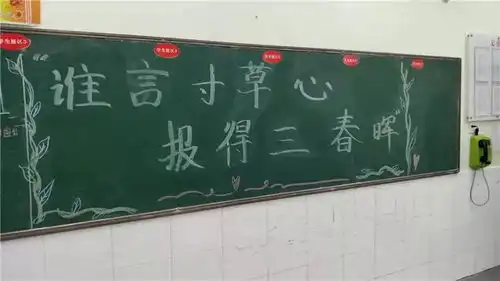 “谁言寸草心
报得三春晖”